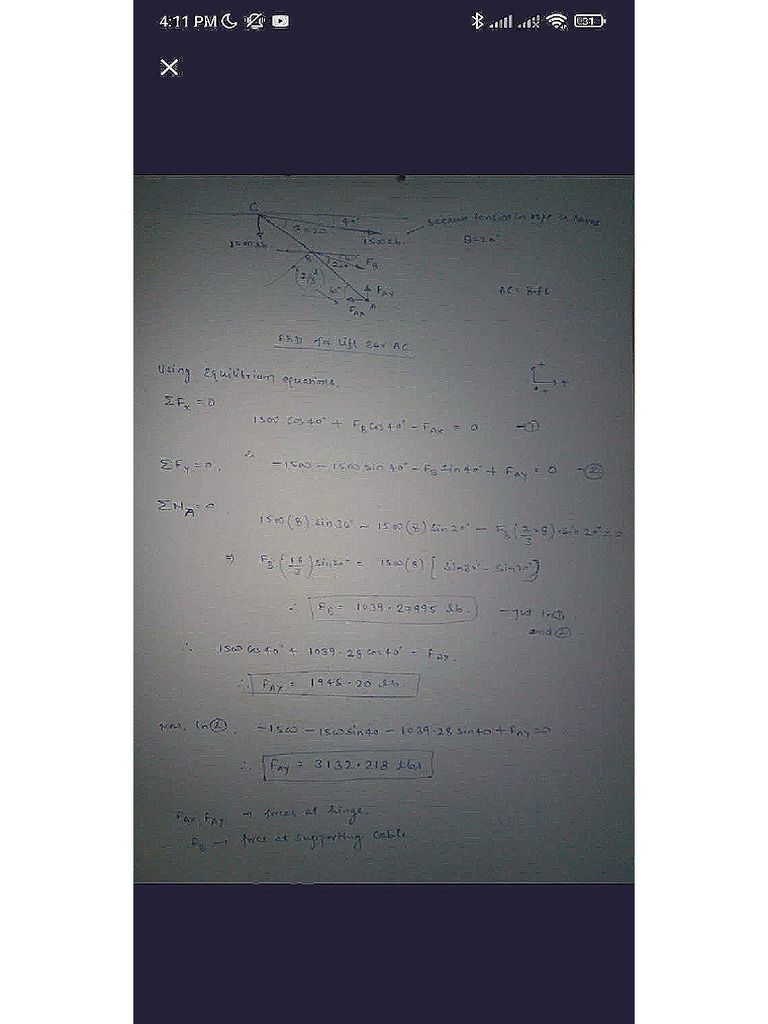 4:11 PM
31
C
40°
because tension in rope is same
θ=20
1500 lb.
1500 lb.
θ=20°
F_B
20°
2/3
60°
F_AY
AC = 8-ft
A
F_AX
FBD for lift bar AC
Using Equilibrium equations,
ΣF_x = 0
1500 cos 40° + F_B cos 40° - F_AX = 0 -①
ΣF_y = 0, -1500 - 1500 sin 40° - F_B sin 40° + F_AY = 0 -②
ΣM_A = 0
1500(8) sin 30° - 1500(8) sin 20° - F_B(2/3 × 8) · sin 20° = 0
⇒ F_B (16/3) sin 20° = 1500(8) [sin 30° - sin 20°]
∴ F_B = 1039.27995 lb. - put in ①
and ②
∴ 1500 cos 40° + 1039.28 cos 40° = F_AX.
∴ F_AX = 1945.20 lb.
now, in ②, -1500 - 1500 sin 40 - 1039.28 sin 40 + F_AY = 0
∴ F_AY = 3132.218 lbs
F_AX, F_AY → forces at hinge.
F_B → force at supporting cable.